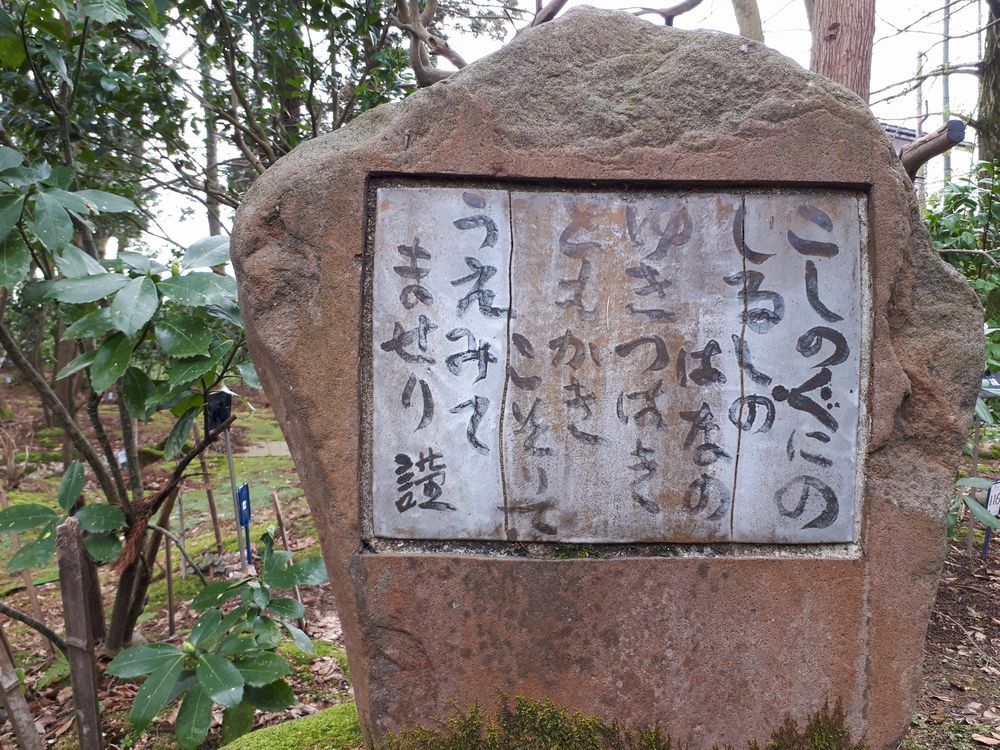 こしのくにの
しるしの
はなの
ゆきつばき
ともかき
こそりて
うえみて
ませり 謹